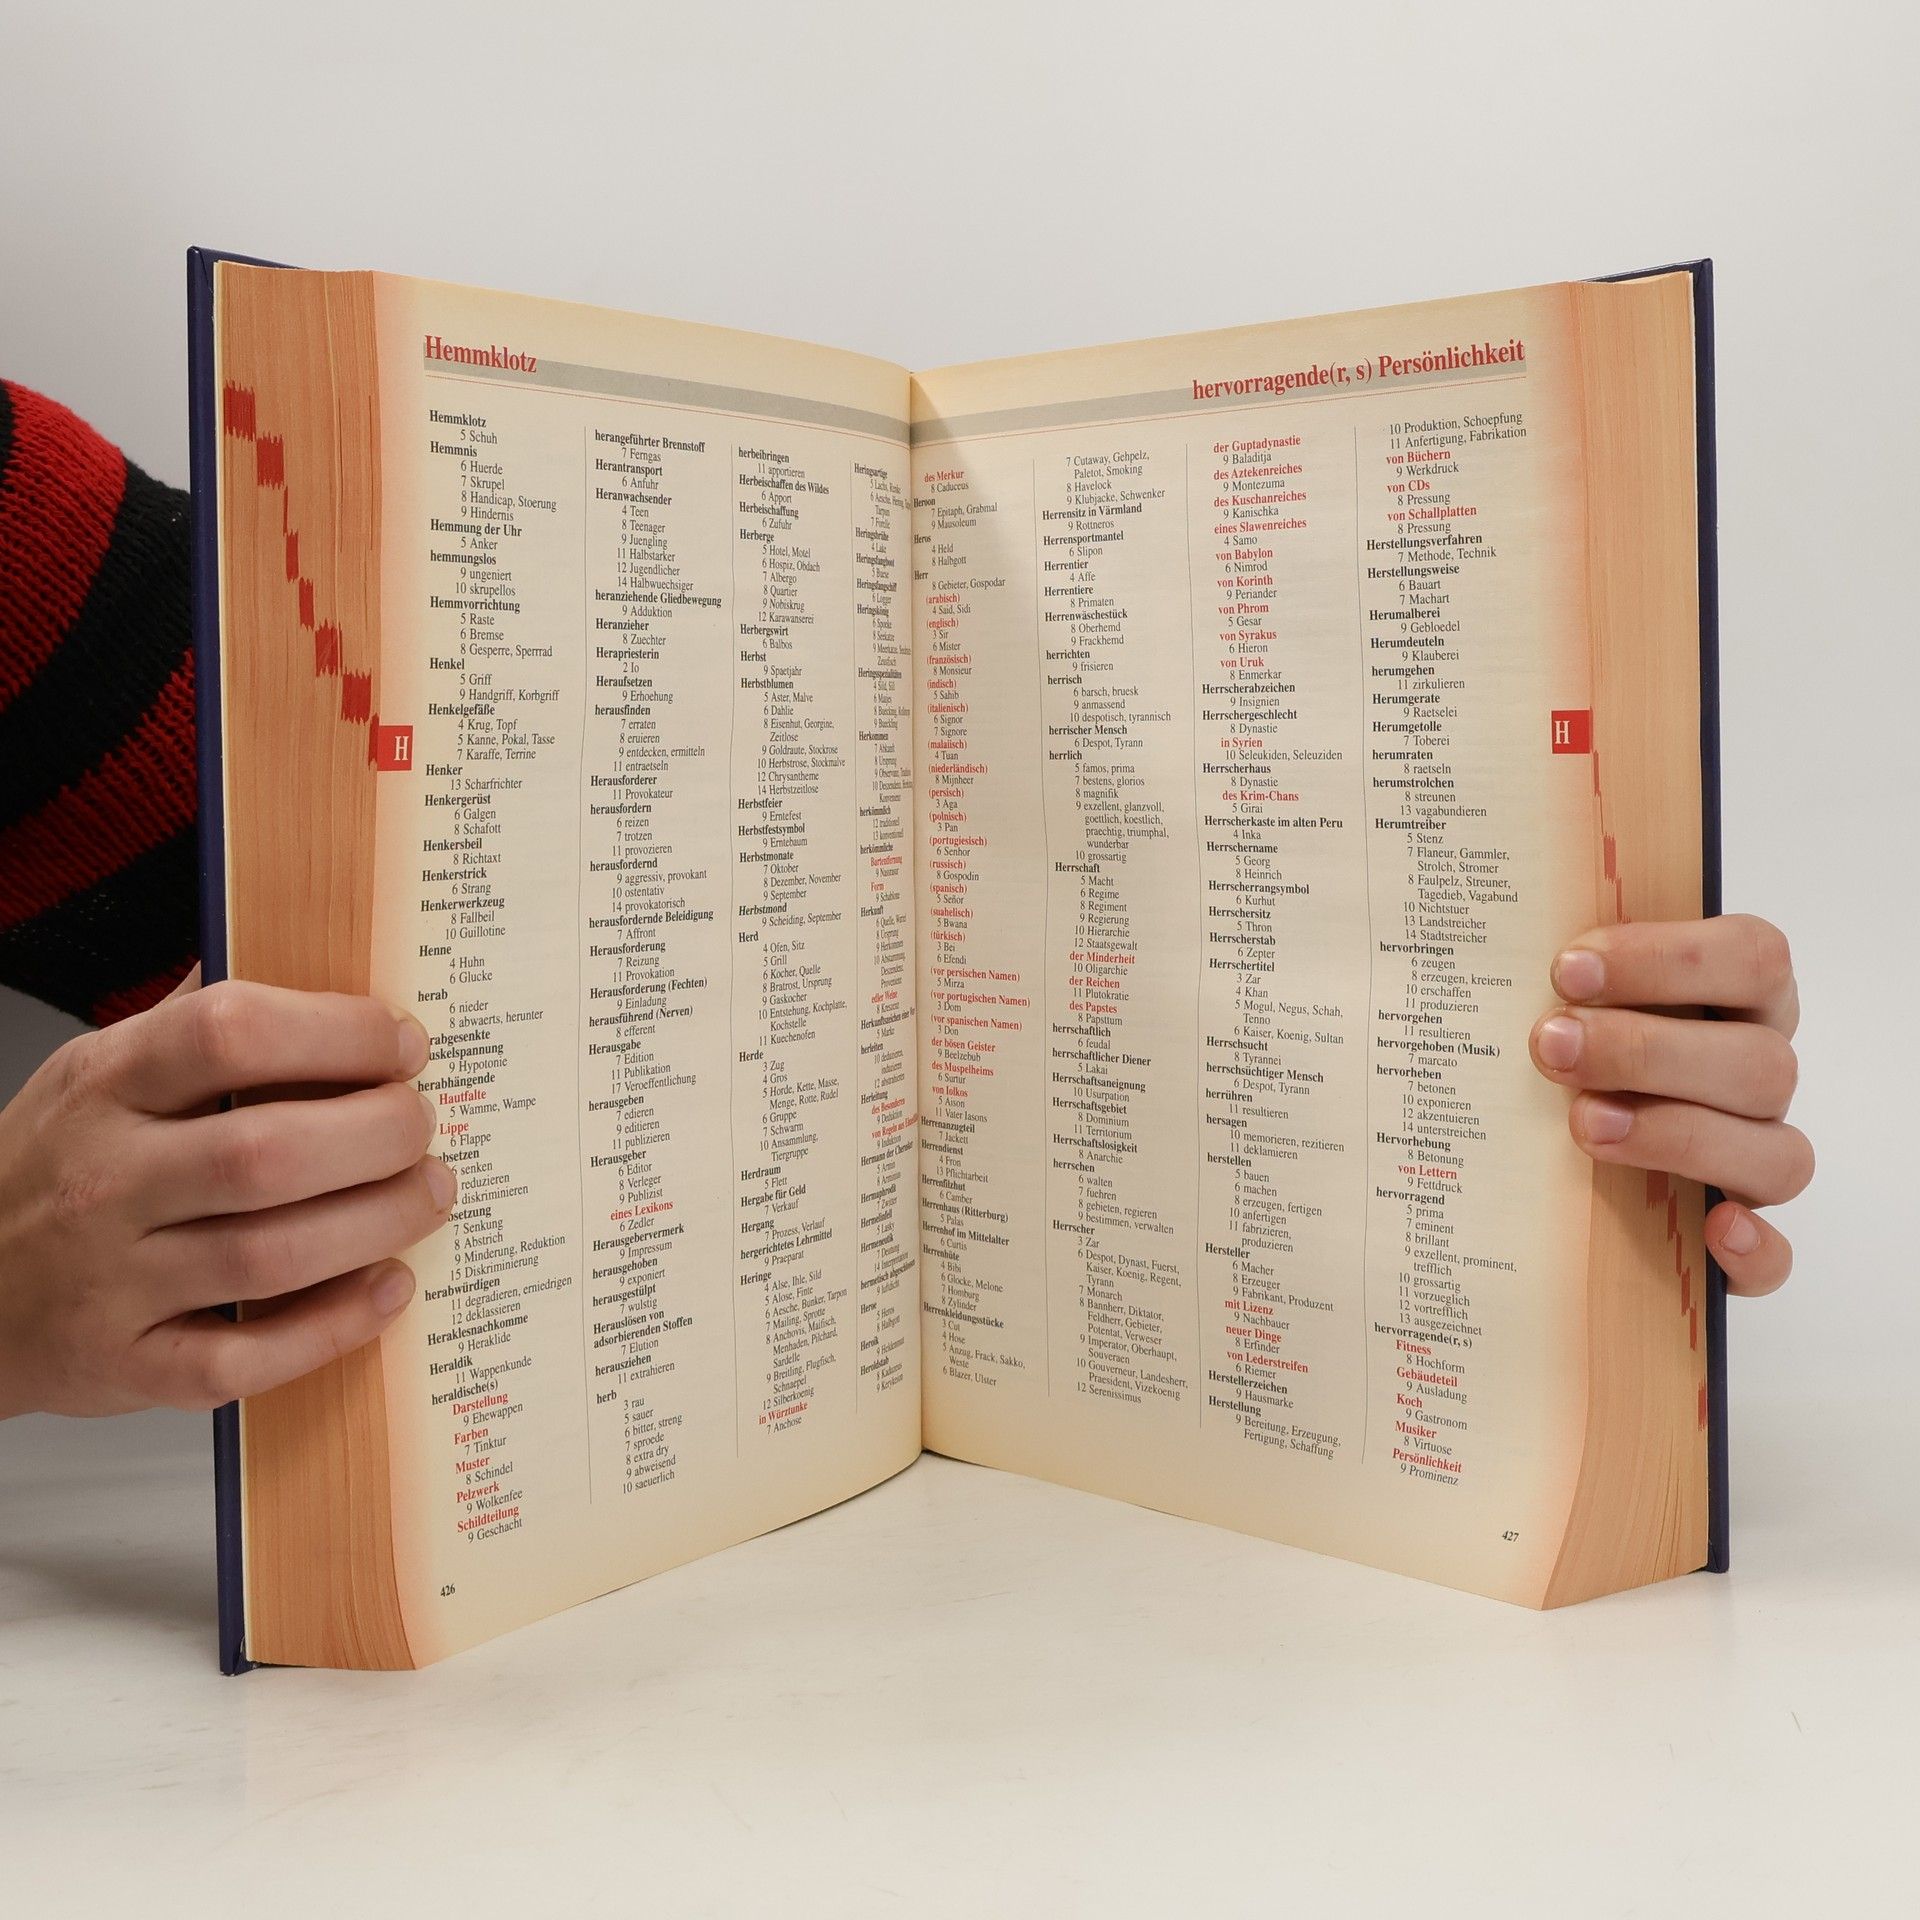 Hemmklotz
Hemmklotz
5 Schuh
Hemmnis
6 Huerde
7 Skrupel
8 Handicap, Stoerung
9 Hindernis
Hemmung der Uhr
5 Anker
hemmungslos
9 ungeniert
10 skrupellos
Hemmvorrichtung
5 Raste
6 Bremse
8 Gesperre, Sperrrad
Henkel
5 Griff
9 Handgriff, Korbgriff
Henkelgefäße
4 Krug, Topf
5 Kanne, Pokal, Tasse
7 Karaffe, Terrine
Henker
13 Scharfrichter
Henkergerüst
6 Galgen
8 Schafott
Henkersbeil
8 Richtaxt
Henkerstrick
6 Strang
Henkerwerkzeug
8 Fallbeil
10 Guillotine
Henne
4 Huhn
6 Glucke
herab
6 nieder
8 abwaerts, herunter
rabgesenkte
uskelspannung
9 Hypotonie
herabhängende
Hautfalte
5 Wamme, Wampe
Lippe
6 Flappe
absetzen
6 senken
reduzieren
diskriminieren
setzung
7 Senkung
8 Abstrich
9 Minderung, Reduktion
15 Diskriminierung
herabwürdigen
11 degradieren, erniedrigen
12 deklassieren
Heraklesnachkomme
9 Heraklide
Heraldik
11 Wappenkunde
heraldische(s)
Darstellung
9 Ehewappen
Farben
7 Tinktur
Muster
8 Schindel
Pelzwerk
9 Wolkenfee
Schildteilung
9 Geschacht
herangeführter Brennstoff
7 Ferngas
Herantransport
6 Anfuhr
Heranwachsender
4 Teen
8 Teenager
9 Juengling
11 Halbstarker
12 Jugendlicher
14 Halbwuechsiger
heranziehende Gliedbewegung
9 Adduktion
Heranzieher
8 Zuechter
Herapriesterin
2 Io
Heraufsetzen
9 Erhoehung
herausfinden
7 erraten
8 eruieren
9 entdecken, ermitteln
11 entraetseln
Herausforderer
11 Provokateur
herausfordern
6 reizen
7 trotzen
11 provozieren
herausfordernd
9 aggressiv, provokant
10 ostentativ
14 provokatorisch
herausfordernde Beleidigung
7 Affront
Herausforderung
7 Reizung
11 Provokation
Herausforderung (Fechten)
9 Einladung
herausführend (Nerven)
8 efferent
Herausgabe
7 Edition
11 Publikation
17 Veroeffentlichung
herausgeben
7 edieren
9 editieren
11 publizieren
Herausgeber
6 Editor
8 Verleger
9 Publizist
eines Lexikons
6 Zedler
Herausgebervermerk
9 Impressum
herausgehoben
9 exponiert
herausgestülpt
7 wulstig
Herauslösen von
adsorbierenden Stoffen
7 Elution
herausziehen
11 extrahieren
herb
3 rau
5 sauer
6 bitter, streng
7 sproede
8 extra dry
9 abweisend
10 saeuerlich
herbeibringen
11 apportieren
Herbeischaffen des Wildes
6 Apport
Herbeischaffung
6 Zufuhr
Herberge
5 Hotel, Motel
6 Hospiz, Obdach
7 Albergo
8 Quartier
9 Nobiskrug
12 Karawanserei
Herbergswirt
6 Balbos
Herbst
9 Spaetjahr
Herbstblumen
5 Aster, Malve
6 Dahlie
8 Eisenhut, Georgine,
Zeitlose
9 Goldraute, Stockrose
10 Herbstrose, Stockmalve
12 Chrysantheme
14 Herbstzeitlose
Herbstfeier
9 Erntefest
Herbstfestsymbol
9 Erntebaum
Herbstmonate
7 Oktober
8 Dezember, November
9 September
Herbstmond
9 Scheiding, September
Herd
4 Ofen, Sitz
5 Grill
6 Kocher, Quelle
8 Bratrost, Ursprung
9 Gaskocher
10 Entstehung, Kochplatte,
Kochstelle
11 Kuechenofen
Herde
3 Zug
4 Gros
5 Horde, Kette, Masse,
Menge, Rotte, Rudel
6 Gruppe
7 Schwarm
10 Ansammlung,
Tiergruppe
Herdraum
5 Flett
Hergabe für Geld
7 Verkauf
Hergang
7 Prozess, Verlauf
hergerichtetes Lehrmittel
9 Praeparat
Heringe
4 Alse, Ihle, Sild
5 Alose, Finte
6 Aesche, Bunker, Tarpon
7 Mailing, Sprotte
8 Anchovis, Maifisch,
Menhaden, Pilchard,
Sardelle
9 Breitling, Flugfisch,
Schnaepel
12 Silberkoenig
in Würztunke
7 Anchose
Heringsartige
Heringsbrühe
4 Lake
Heringsfangboot
5 Buese
Heringsfangschiff
6 Logger
Heringskönig
Heringsspezialitäten
Herkommen
7 Abkunft
8 Ursprung
herkömmlich
12 traditionell
13 konventionell
herkömmliche
Bartentfernung
9 Nassrasur
Form
Herkunft
8 Ursprung
9 Herkommen
10 Abstammung,
Deszendenz,
Provenienz
edler Weine
8 Kreszenz
herleiten
10 deduzieren,
induzieren
12 abstrahieren
Herleitung
des Besonderen
9 Deduktion
9 Induktion
5 Armin
8 Arminius
Hermaphrodit
7 Zwitter
Hermelinfell
5 Lasky
Hermeneutik
7 Deutung
14 Interpretation
hermetisch abgeschlossen
9 luftdicht
Heroe
5 Heros
8 Halbgott
Heroik
9 Heldenmut
Heroldstab
8 Kaduzeus
9 Kerykeion
426
H
hervorragende(r, s) Persönlichkeit
des Merkur
8 Caduceus
Heroon
7 Epitaph, Grabmal
9 Mausoleum
Heros
4 Held
8 Halbgott
Herr
8 Gebieter, Gospodar
(arabisch)
4 Said, Sidi
(englisch)
3 Sir
6 Mister
(französisch)
8 Monsieur
(indisch)
5 Sahib
(italienisch)
6 Signor
7 Signore
(malaiisch)
4 Tuan
(niederländisch)
8 Mijnheer
(persisch)
3 Aga
(polnisch)
3 Pan
(portugiesisch)
6 Senhor
(russisch)
8 Gospodin
(spanisch)
5 Señor
(suahelisch)
5 Bwana
(türkisch)
3 Bei
6 Efendi
(vor persischen Namen)
5 Mirza
(vor portugischen Namen)
3 Dom
(vor spanischen Namen)
3 Don
der bösen Geister
9 Beelzebub
des Muspelheims
6 Surtur
von Iolkos
5 Aison
11 Vater Iasons
Herrenanzugteil
7 Jackett
Herrendienst
4 Fron
13 Pflichtarbeit
Herrenfilzhut
6 Camber
Herrenhaus (Ritterburg)
5 Palas
Herrenhof im Mittelalter
6 Curtis
Herrenhüte
4 Bibi
6 Glocke, Melone
7 Homburg
8 Zylinder
Herrenkleidungsstücke
3 Cut
4 Hose
5 Anzug, Frack, Sakko,
Weste
6 Blazer, Ulster
7 Cutaway, Gehpelz,
Paletot, Smoking
8 Havelock
9 Klubjacke, Schwenker
Herrensitz in Värmland
9 Rottneros
Herrensportmantel
6 Slipon
Herrentier
4 Affe
Herrentiere
8 Primaten
Herrenwäschestück
8 Oberhemd
9 Frackhemd
herrichten
9 frisieren
herrisch
6 barsch, bruesk
9 anmassend
10 despotisch, tyrannisch
herrischer Mensch
6 Despot, Tyrann
herrlich
5 famos, prima
7 bestens, glorios
8 magnifik
9 exzellent, glanzvoll,
goettlich, koestlich,
praechtig, triumphal,
wunderbar
10 grossartig
Herrschaft
5 Macht
6 Regime
8 Regiment
9 Regierung
10 Hierarchie
12 Staatsgewalt
der Minderheit
10 Oligarchie
der Reichen
11 Plutokratie
des Papstes
8 Papsttum
herrschaftlich
6 feudal
herrschaftlicher Diener
5 Lakai
Herrschaftsaneignung
10 Usurpation
Herrschaftsgebiet
8 Dominium
11 Territorium
Herrschaftslosigkeit
8 Anarchie
herrschen
6 walten
7 fuehren
8 gebieten, regieren
9 bestimmen, verwalten
Herrscher
3 Zar
6 Despot, Dynast, Fuerst,
Kaiser, Koenig, Regent,
Tyrann
7 Monarch
8 Bannherr, Diktator,
Feldherr, Gebieter,
Potentat, Verweser
9 Imperator, Oberhaupt,
Souveraen
10 Gouverneur, Landesherr,
Praesident, Vizekoenig
12 Serenissimus
der Guptadynastie
9 Baladitja
des Aztekenreiches
9 Montezuma
des Kuschanreiches
9 Kanischka
eines Slawenreiches
4 Samo
von Babylon
6 Nimrod
von Korinth
9 Periander
von Phrom
5 Gesar
von Syrakus
6 Hieron
von Uruk
8 Enmerkar
Herrscherabzeichen
9 Insignien
Herrschergeschlecht
8 Dynastie
in Syrien
10 Seleukiden, Seleuziden
Herrscherhaus
8 Dynastie
des Krim-Chans
5 Girai
Herrscherkaste im alten Peru
4 Inka
Herrschername
5 Georg
8 Heinrich
Herrscherrangsymbol
6 Kurhut
Herrschersitz
5 Thron
Herrscherstab
6 Zepter
Herrschertitel
3 Zar
4 Khan
5 Mogul, Negus, Schah,
Tenno
6 Kaiser, Koenig, Sultan
Herrschsucht
8 Tyrannei
herrschsüchtiger Mensch
6 Despot, Tyrann
herrühren
11 resultieren
hersagen
10 memorieren, rezitieren
11 deklamieren
herstellen
5 bauen
6 machen
8 erzeugen, fertigen
10 anfertigen
11 fabrizieren,
produzieren
Hersteller
6 Macher
8 Erzeuger
9 Fabrikant, Produzent
mit Lizenz
9 Nachbauer
neuer Dinge
8 Erfinder
von Lederstreifen
6 Riemer
Herstellerzeichen
9 Hausmarke
Herstellung
9 Bereitung, Erzeugung,
Fertigung, Schaffung
10 Produktion, Schoepfung
11 Anfertigung, Fabrikation
von Büchern
9 Werkdruck
von CDs
8 Pressung
von Schallplatten
8 Pressung
Herstellungsverfahren
7 Methode, Technik
Herstellungsweise
6 Bauart
7 Machart
Herumalberei
9 Gebloedel
Herumdeuteln
9 Klauberei
herumgehen
11 zirkulieren
Herumgerate
9 Raetselei
Herumgetolle
7 Toberei
herumraten
8 raetseln
herumstrolchen
8 streunen
13 vagabundieren
Herumtreiber
5 Stenz
7 Flaneur, Gammler,
Strolch, Stromer
8 Faulpelz, Streuner,
Tagedieb, Vagabund
10 Nichtstuer
13 Landstreicher
14 Stadtstreicher
hervorbringen
6 zeugen
8 erzeugen, kreieren
10 erschaffen
11 produzieren
hervorgehen
11 resultieren
hervorgehoben (Musik)
7 marcato
hervorheben
7 betonen
10 exponieren
12 akzentuieren
14 unterstreichen
Hervorhebung
8 Betonung
von Lettern
9 Fettdruck
hervorragend
5 prima
7 eminent
8 brillant
9 exzellent, prominent,
trefflich
10 grossartig
11 vorzueglich
12 vortrefflich
13 ausgezeichnet
hervorragende(r, s)
Fitness
8 Hochform
Gebäudeteil
9 Ausladung
Koch
9 Gastronom
Musiker
8 Virtuose
Persönlichkeit
9 Prominenz
427
H